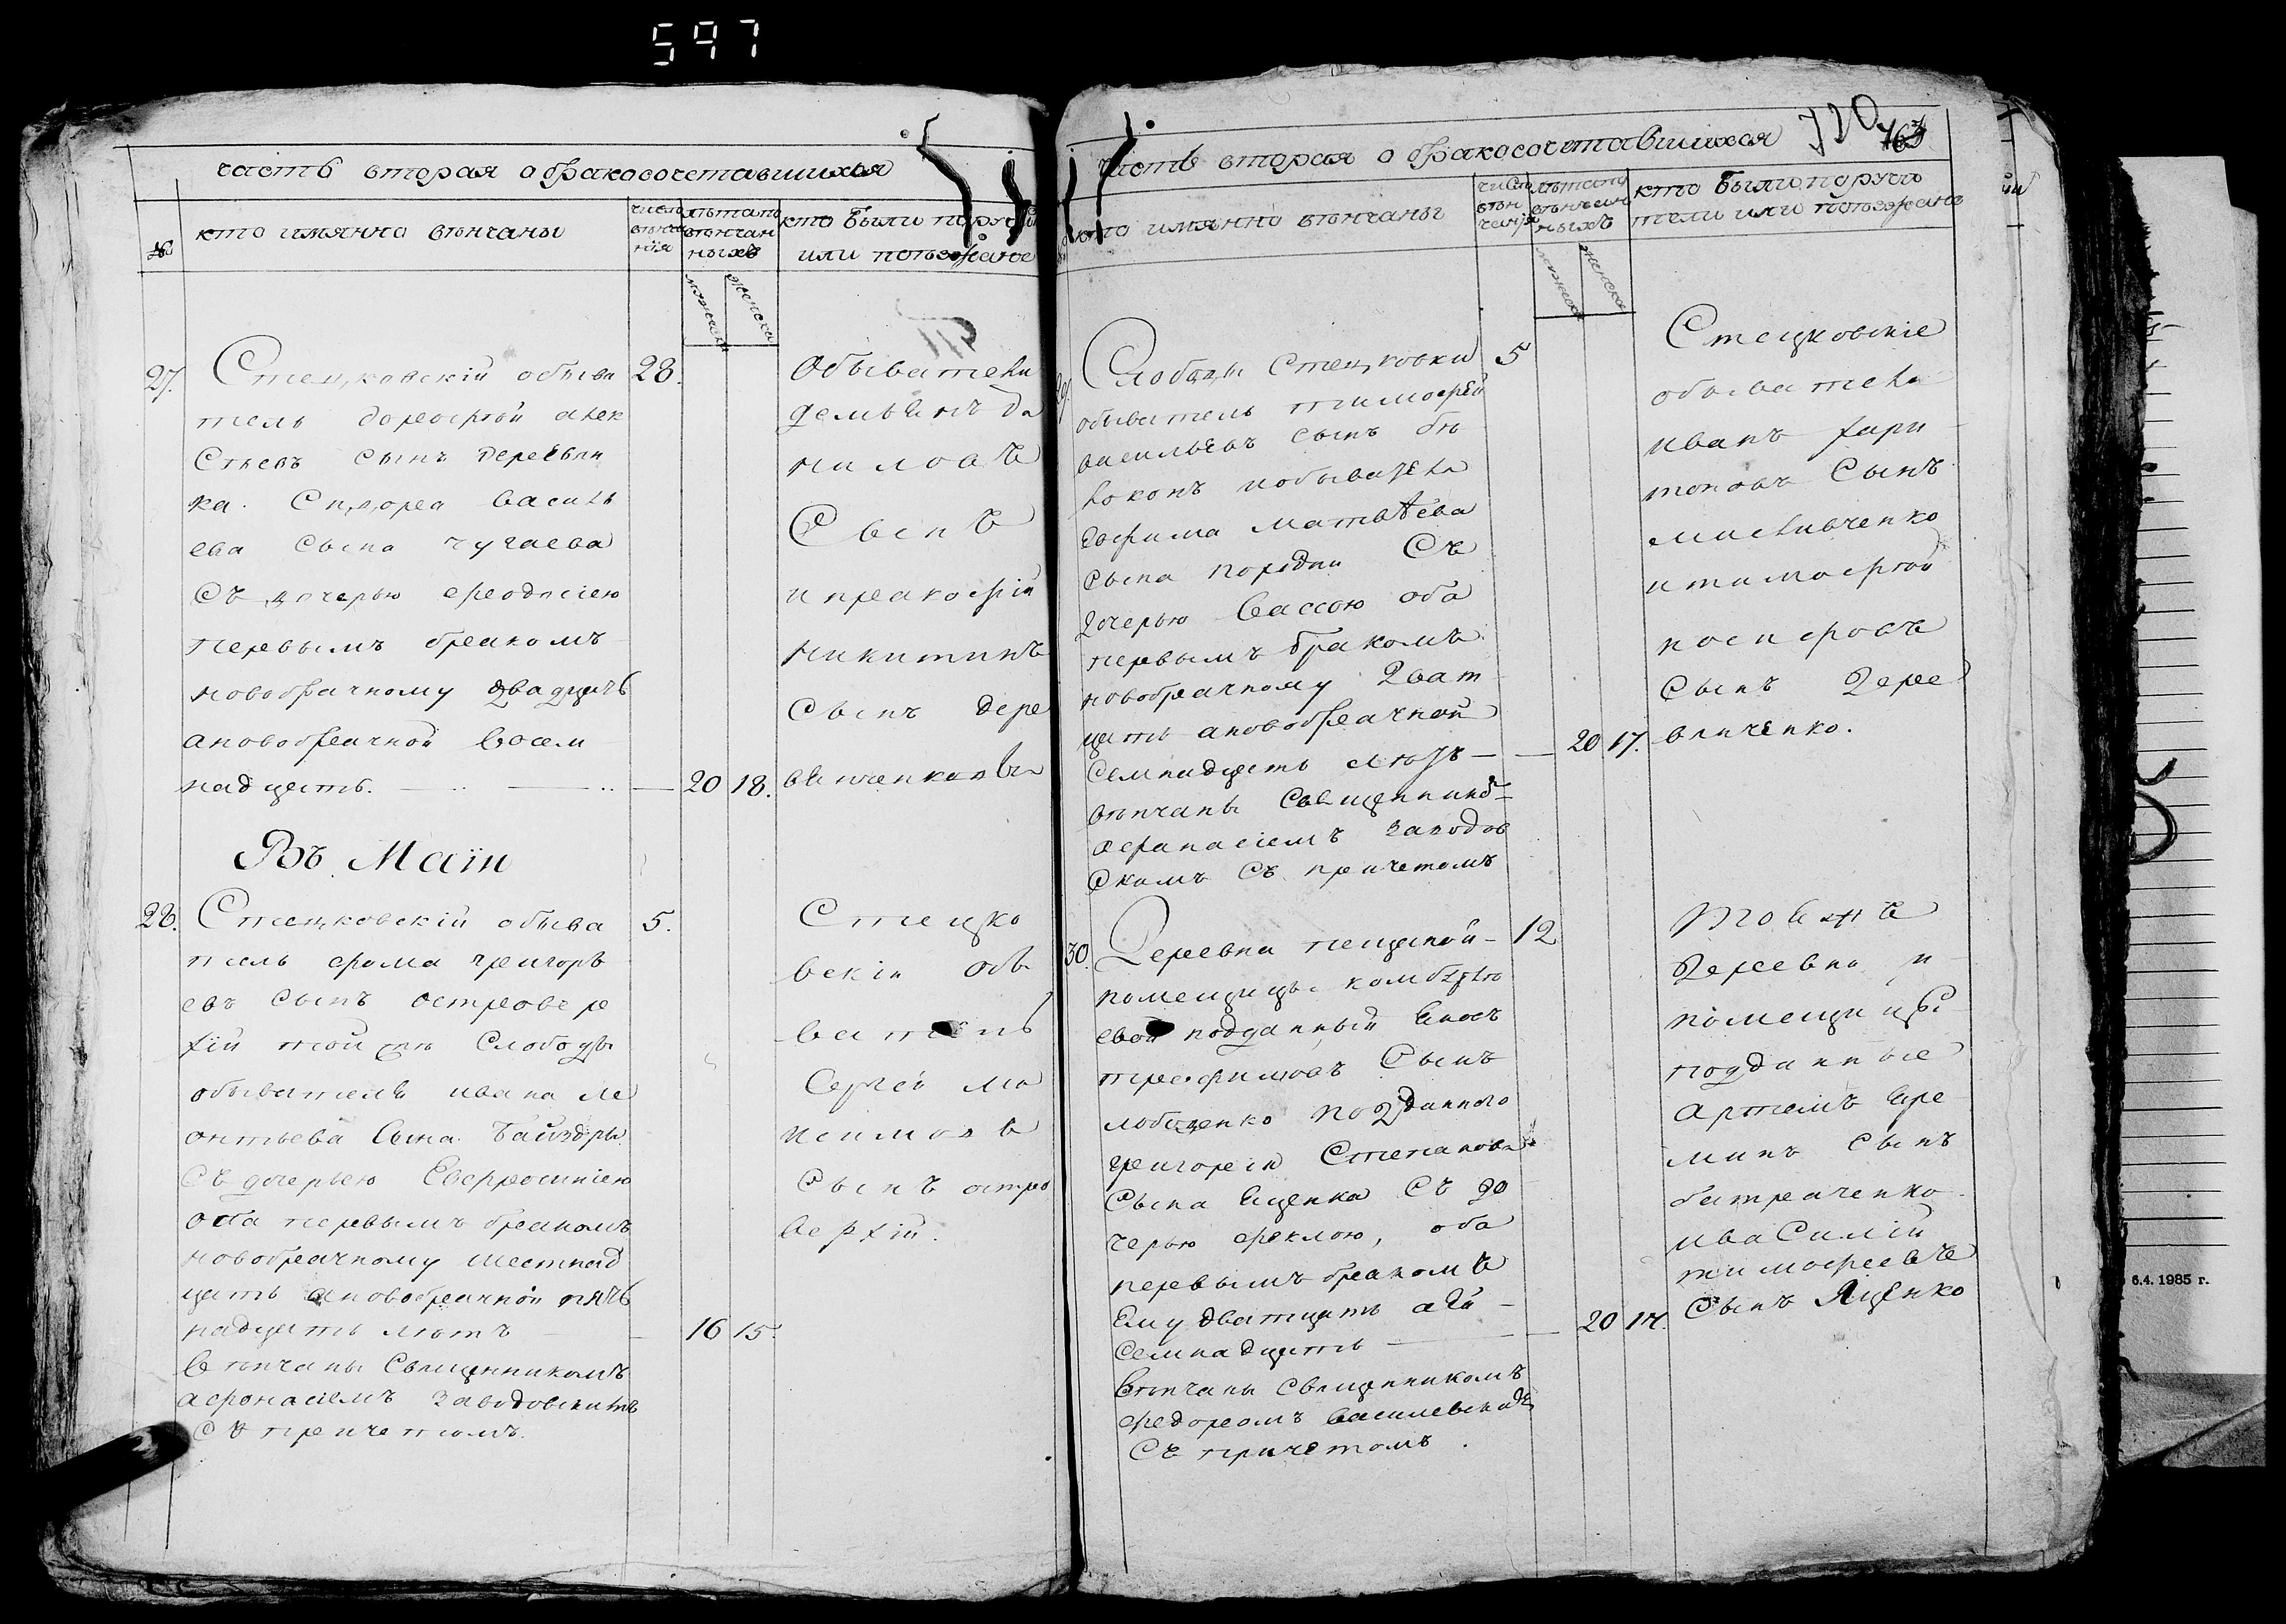 597
часть вторая о бракосочетавшихся
№
кто имянно вѣнчаны
число вѣнча нія
лѣта вѣнчан ныхъ
кто были поруч
или поѣзжане
мужеска
женска
27.
Стецковскій обыва
28.
тель дорофѣй алек
сѣевъ сынъ деревян
ка. Сидора василь
ева сына чугаева
съ дочерью феодосіею
первымъ бракомъ
новобрачному двадцать
а новобрачной восем
надцать.
20 18.
Обыватели
демьянъ да
ниловъ
Сынъ
и пракофій
никитинъ
Сынъ дере
вянченковы
Въ Маіи
28.
Стецковскій обыва
5.
тель фома григорь
евъ сынъ островер
хій той же слободы
обывателя ивана ле
онтьева сына байздры
съ дочерью Евфросиніею
оба первымъ бракомъ
новобрачному шестнад
цать а новобрачной пять
надцать лѣтъ
16 15.
вѣнчаны священникомъ
афонасіемъ заводовскимъ
съ причетомъ.
Стецко
вскій обы
ватель
Сергѣй ма
ксимовъ
Сынъ остро
верхій.
часть вторая о бракосочетавшихся
720
763
кто имянно вѣнчаны
число вѣн чанія
лѣта вѣнчан ныхъ
кто были поручи
тели или поѣзжане
мужеска
женска
29.
Слободы Стецковки
5
обыватель тимофей
васильевъ сынъ бѣ
локонъ и обывателя
Ефима матвѣева
сына
съ
дочерью вассою оба
первымъ бракомъ
новобрачному дват
цать а новобрачной
семнадцать лѣтъ
20 17.
вѣнчаны священникомъ
афанасіемъ заводов
скимъ съ причетомъ
Стецковскіе
обыватели
иванъ хари
тоновъ Сынъ
и тимофей
иосифовъ
Сынъ дере
вянченко.
30.
Деревни пещаной
12
помещицы
подданный
трофимовъ Сынъ
лободенко подданного
григорія Степанова
сына Яценка съ до
черью феклою, оба
первымъ бракомъ
Ему дватцать а ей
семнадцать
20 17.
вѣнчаны священникомъ
федоромъ василевскимъ
съ причетомъ.
Той же
деревни и
помещицы
подданные
Артемъ Ере
минъ сынъ
батраченко
и василій
тимофеевъ
Сынъ Яценко
6.4. 1985 г.